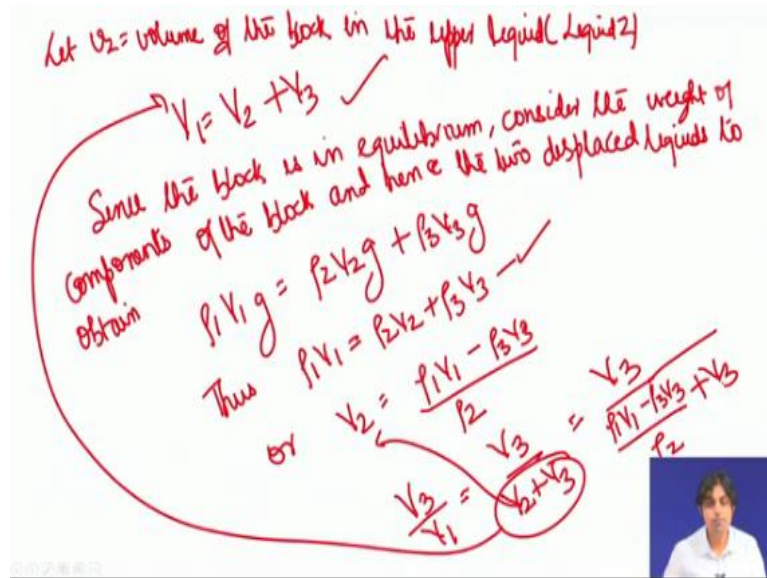 Let V₂ = volume of the block in the upper liquid (Liquid 2)
V₁ = V₂ + V₃ ✓
Since the block is in equilibrium, consider the weight of
components of the block and hence the two displaced liquids to
obtain
ρ₁V₁g = ρ₂V₂g + ρ₃V₃g
Thus ρ₁V₁ = ρ₂V₂ + ρ₃V₃ ✓
or V₂ = (ρ₁V₁ - ρ₃V₃)/ρ₂
V₃/V₁ = V₃/(V₂ + V₃) = V₃/((ρ₁V₁ - ρ₃V₃)/ρ₂ + V₃)